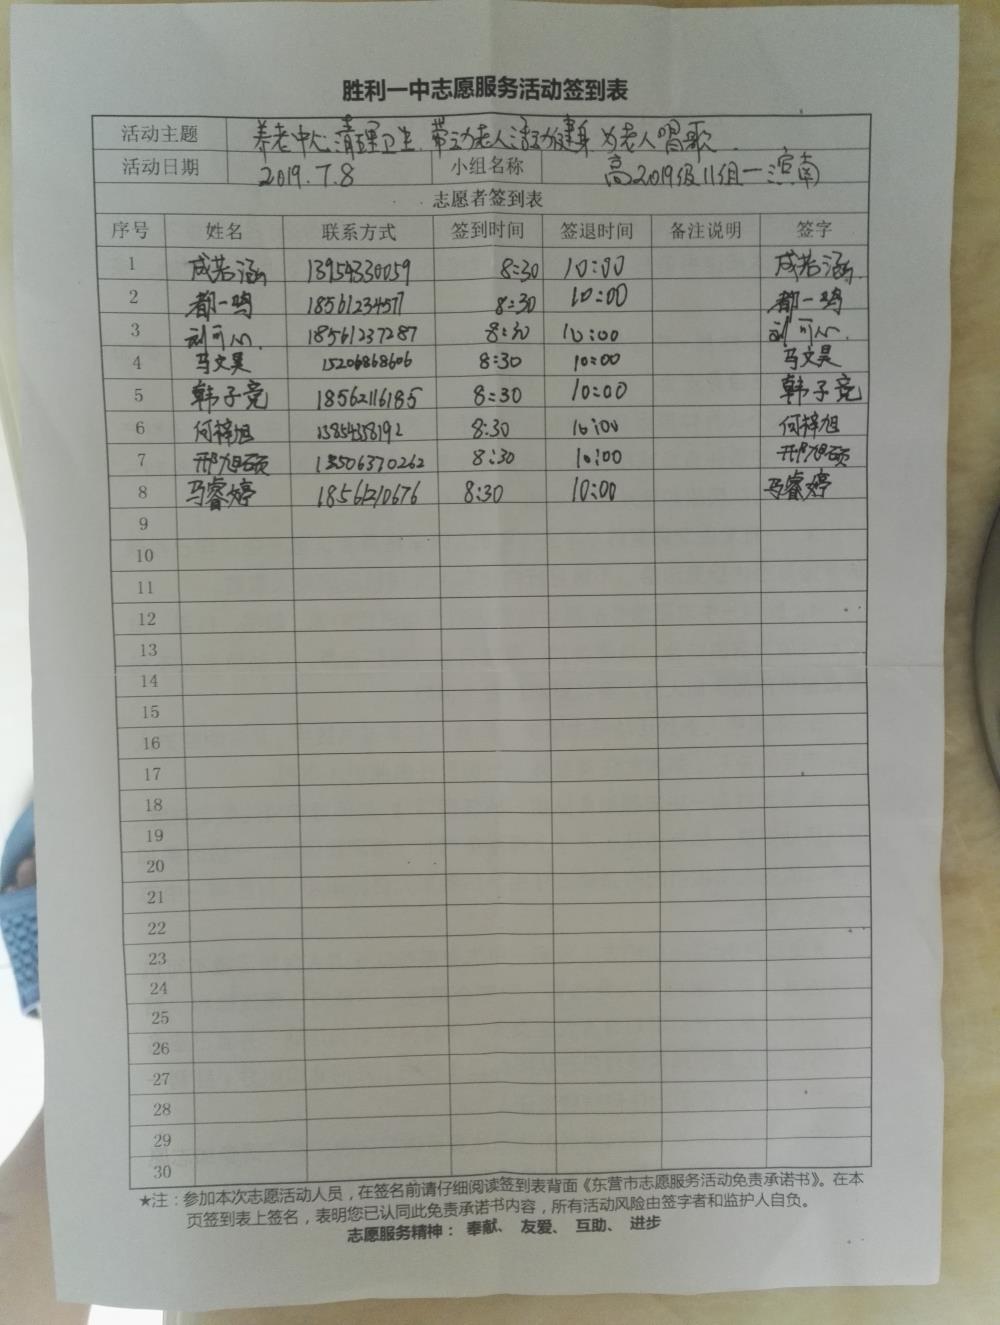 胜利一中志愿服务活动签到表
活动主题 养老中心清理卫生.带动老人活动健身 为老人唱歌.
活动日期 2019.7.8 小组名称 高2019级11组一滨南
志愿者签到表
序号 姓名 联系方式 签到时间 签退时间 备注说明 签字
1 成若涵 13954330059 8:30 10:00 成若涵
2 都一鸣 18561234517 8:30 10:00 都一鸣
3 刘可心. 18561237287 8:30 10:00 刘可心.
4 马文昊 15206868606 8:30 10:00 马文昊
5 韩子竞 18562116185 8:30 10:00 韩子竞
6 何梓旭 8:30 10:00 何梓旭
7 邢旭硕 13506370262 8:30 10:00 邢旭硕
8 马睿婷 18561210676 8:30 10:00 马睿婷
9
10
11
12
13
14
15
16
17
18
19
20
21
22
23
24
25
26
27
28
29
30
★注：参加本次志愿活动人员，在签名前请仔细阅读签到表背面《东营市志愿服务活动免责承诺书》。在本
页签到表上签名，表明您已认同此免责承诺书内容，所有活动风险由签字者和监护人自负。
志愿服务精神： 奉献、 友爱、 互助、 进步